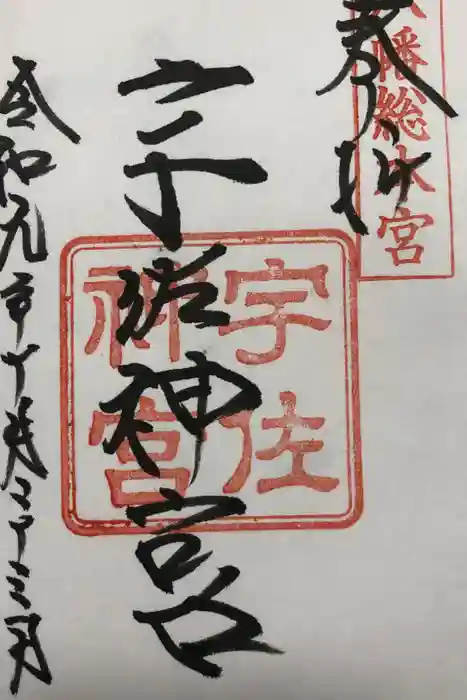 奉拝
八幡総本宮
宇佐神宮
宇佐
神宮
令和元年十月二十三日